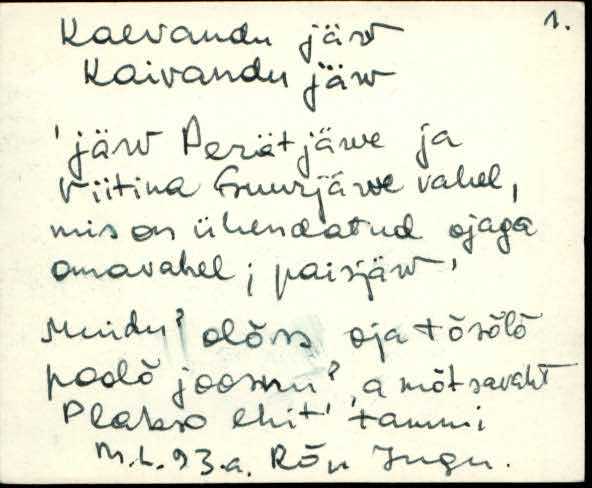 1.
Kaevandu järv
Kaivandu järv
'järv Perätjärve ja
Viitina Suurjärve vahel,
mis on ühendatud ojaga
omavahel; paisjärv'
Muidu? olõss oja tõsõlõ
poolõ joosnu?, a mõtsavaht
Plakso ehit' tammi
M.L. 93.a. Rõu Jugu.